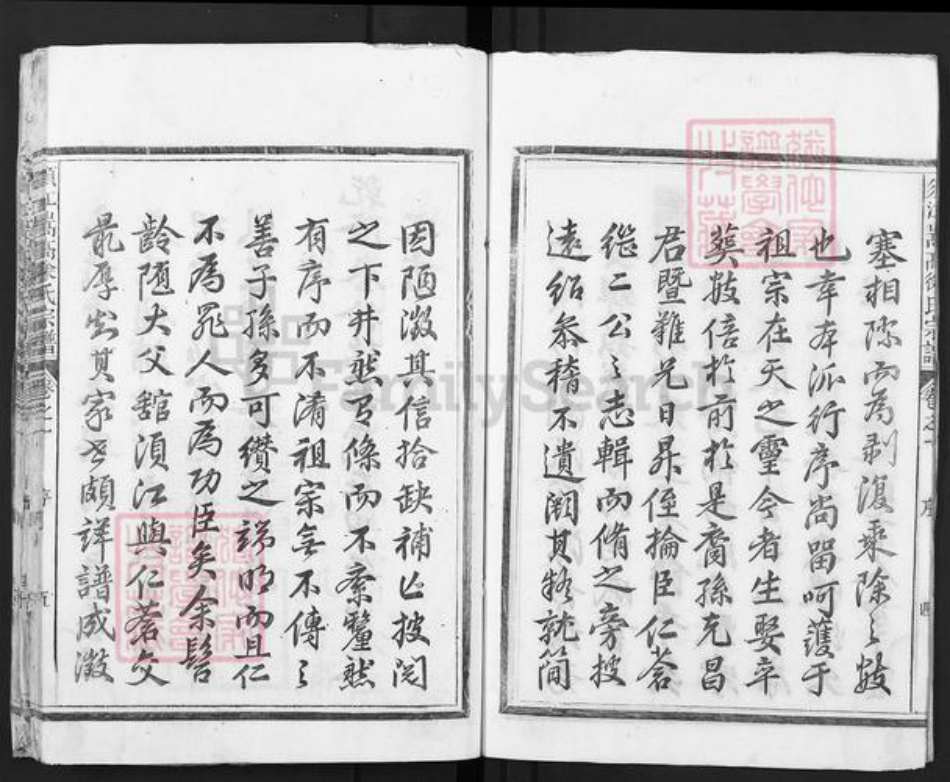 塞相際而為剥復乘除之數
也幸本派行序尚留呵護于
祖宗在天之靈今者生娶卒
葬數倍於前於是裔孫克昌
君暨難兄日昇侄掄臣仁蒼
繼二公之志輯而脩之旁搜
遠紹叅稽不遺闕其疑就簡
因陋徵其信拾缺補亡披閱
之下井然有條而不紊釐然
有序而不淆祖宗無不傳之
善子孫多可纘之端明而且仁
不為罪人而為功臣矣余髫
齡隨大父館湏江與仁蒼交
最厚出其家世頗詳譜成徵
FamilySearch